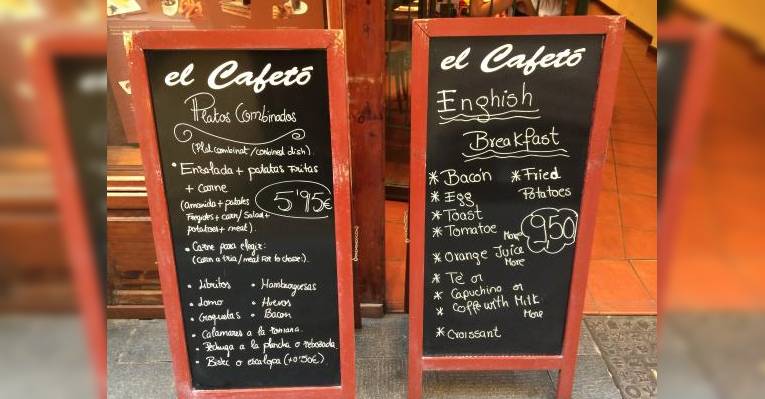 el Cafetó
Platos Combinados
(Plat combinat/conbined dish).
• Ensalada + patatas Fritas
+ carne
(amanida + patates
Fregides + carn/Salad +
potatoes + meat).
5'95€
• Carne para elegir:
(carn a tria/meat for to choose).
• Libritos • Hamburguesas
• Lomo • Huevos
• Croquetas • Bacon
• Calamares a la romana.
• Pechuga a la plancha o rebozada.
• Bistec o escalopa (+0'50€)
el Cafetó
Enghish
Breakfast
* Bacón * Fried
Potatoes
* Egg
* Toast
* Tomatoe
More
9,50
* Orange Juice
More
* Té or
* Capuchino or
* Coffe with Milk
More
* Croissant